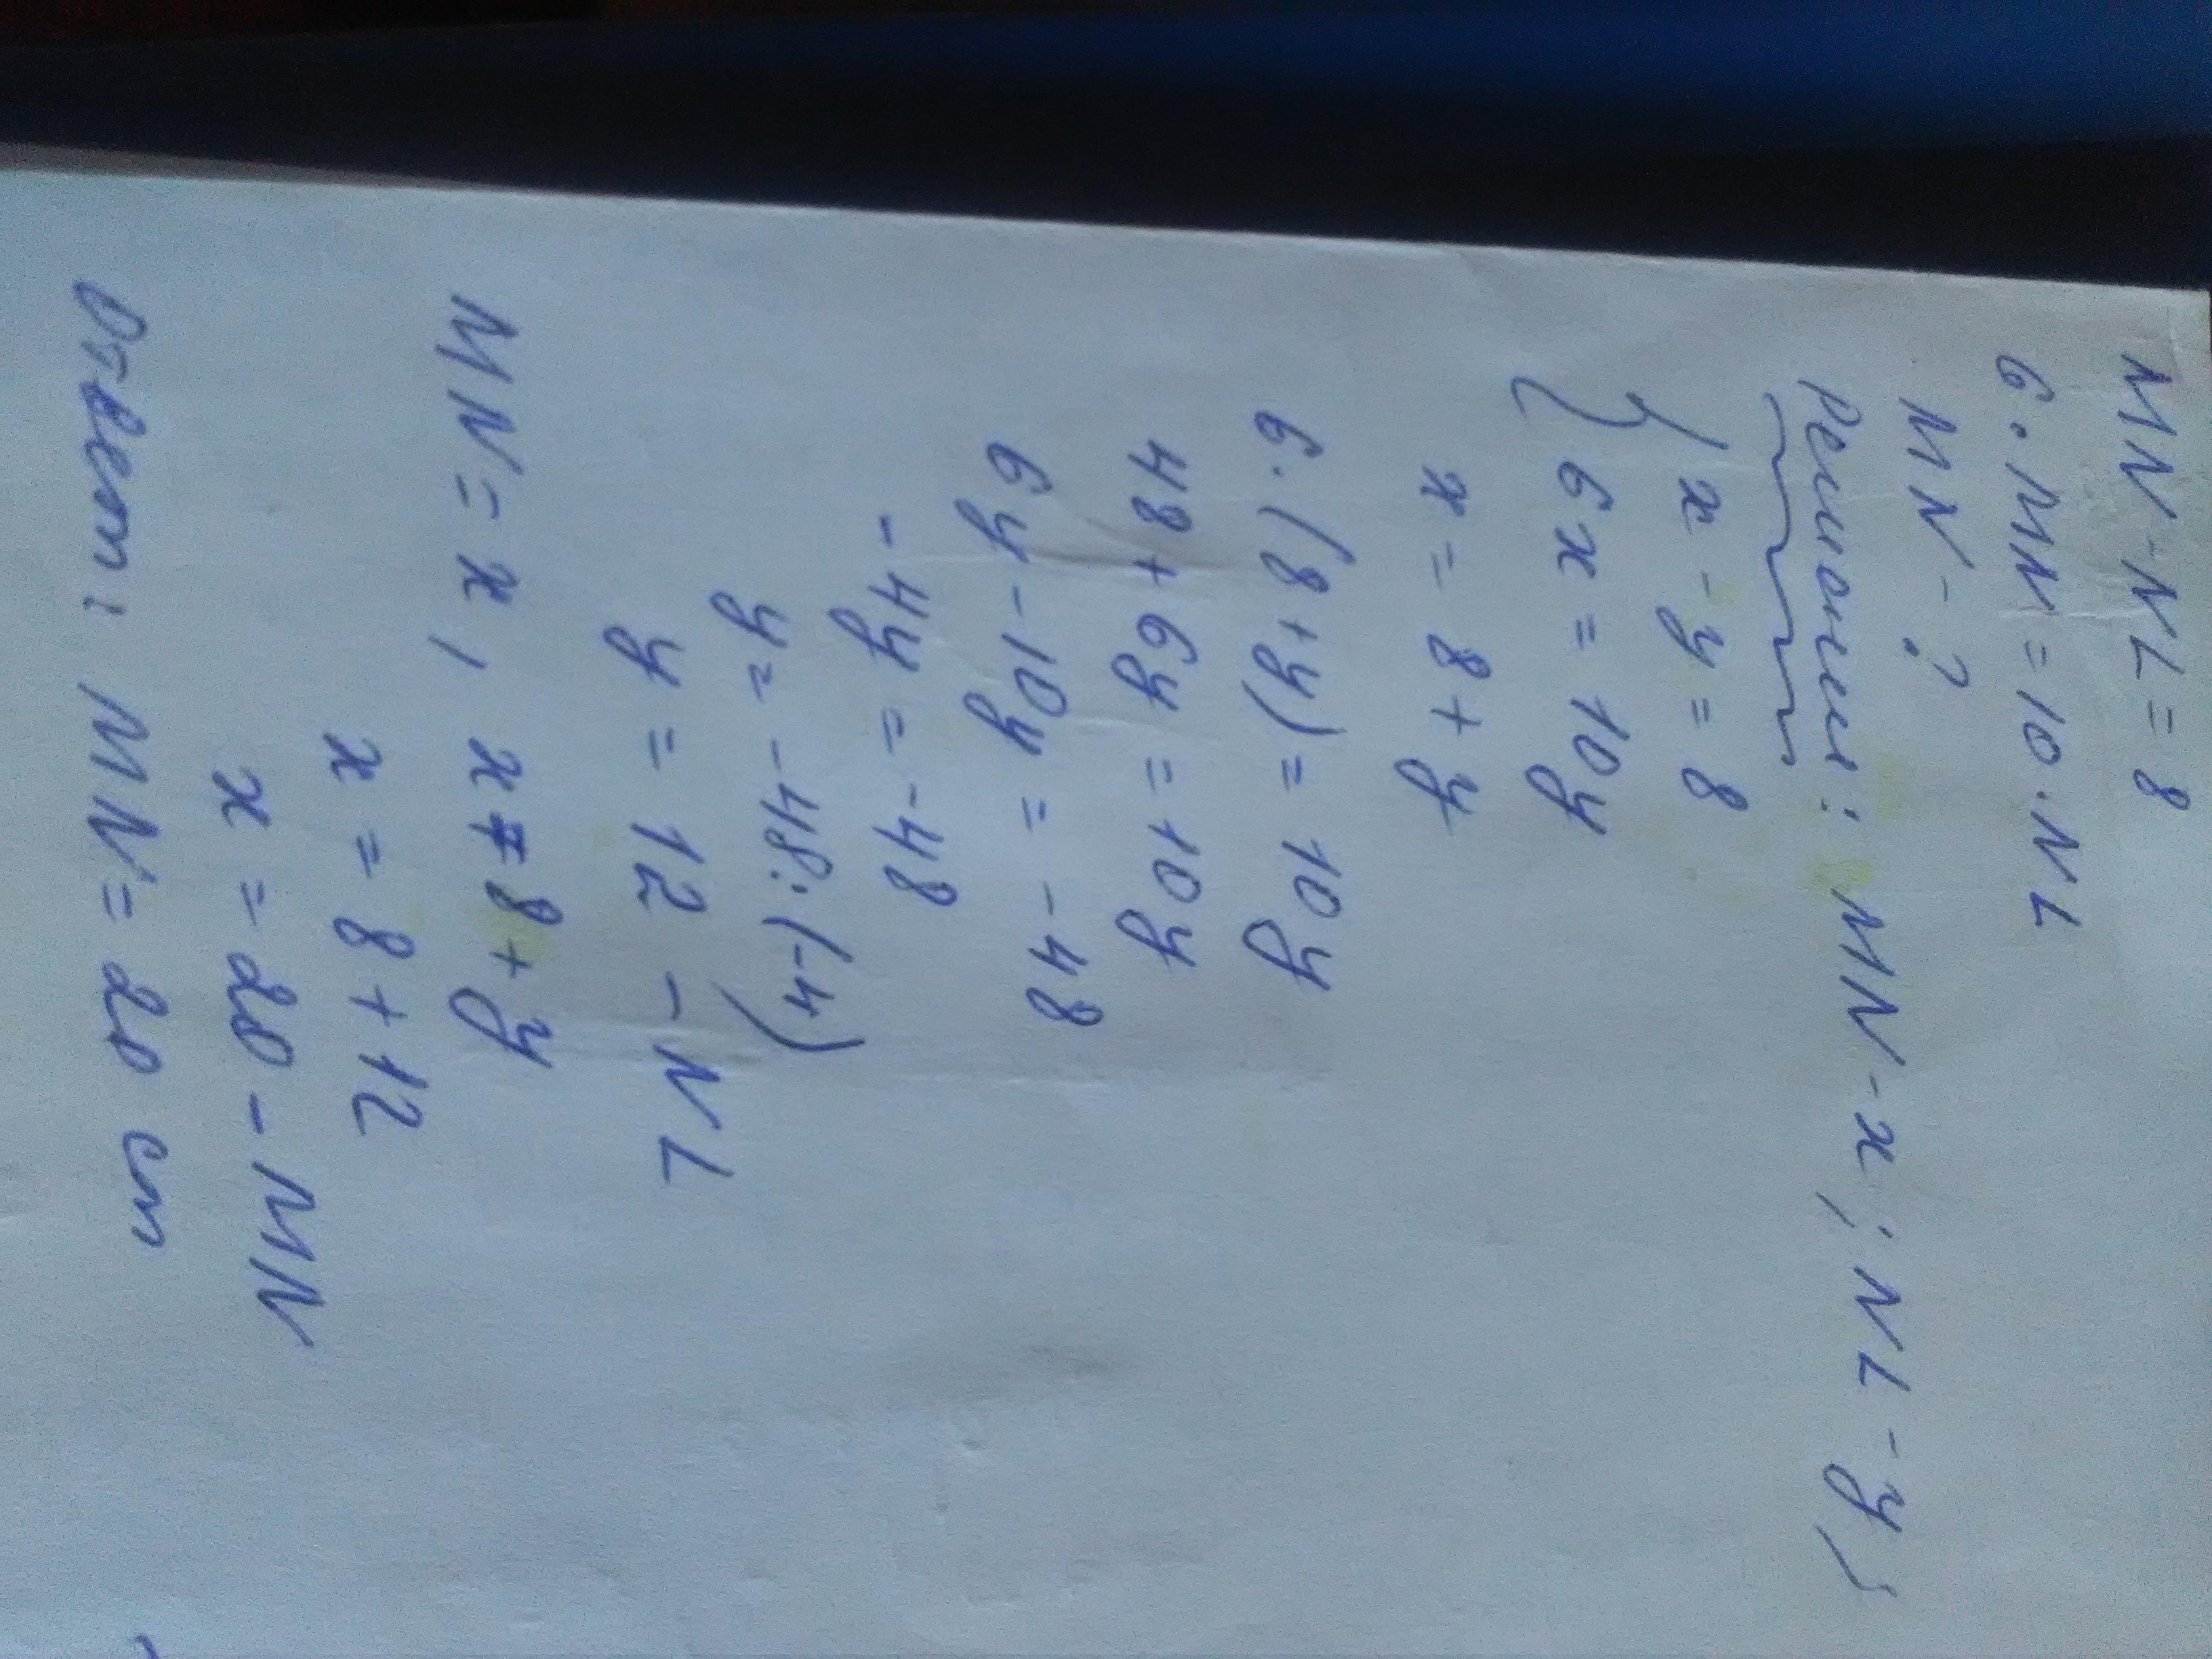 MN - NL = 8
6 · MN = 10 · NL
MN - ?
Решение: MN - x; NL - y;
{ x - y = 8
{ 6x = 10y
x = 8 + y
6 · (8 + y) = 10y
48 + 6y = 10y
6y - 10y = -48
-4y = -48
y = -48 : (-4)
y = 12 - NL
MN = x, x = 8 + y
x = 8 + 12
x = 20 - MN
Ответ: MN = 20 см